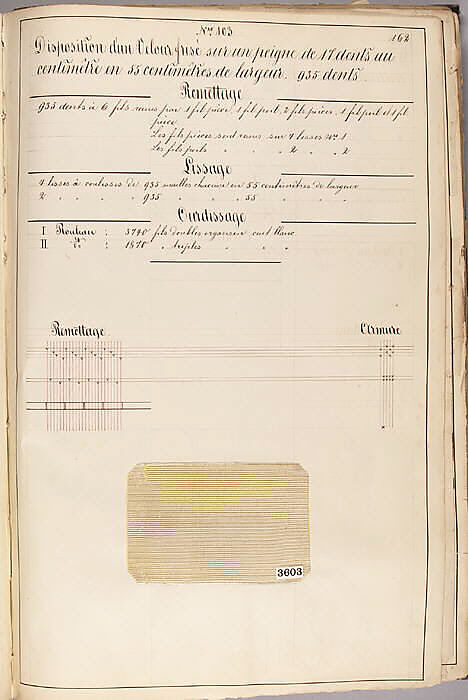 Nº 103
162
Disposition d'un Velour frisé sur un peigne de 17 dents au
centimètre en 55 centimètres de largeur. 935 dents
Remettage
935 dents à 6 fils remis par 1 fil pièce, 1 fil poil, 2 fils pièces, 1 fil poil et 1 fil
pièce
Les fils pièces sont remis sur 4 lisses Nº 1
Les fils poils " " " 2 " " 2
Lissage
4 lisses à coulisses de 935 mailles chacune en 55 centimètres de largeur
2 " " " 935 " " " 55 " " "
Ourdissage
I Rouleau : 3740 fils doubles organsin cuit blanc
II dº : 1870 " triples " " "
Remettage
Armure
3603